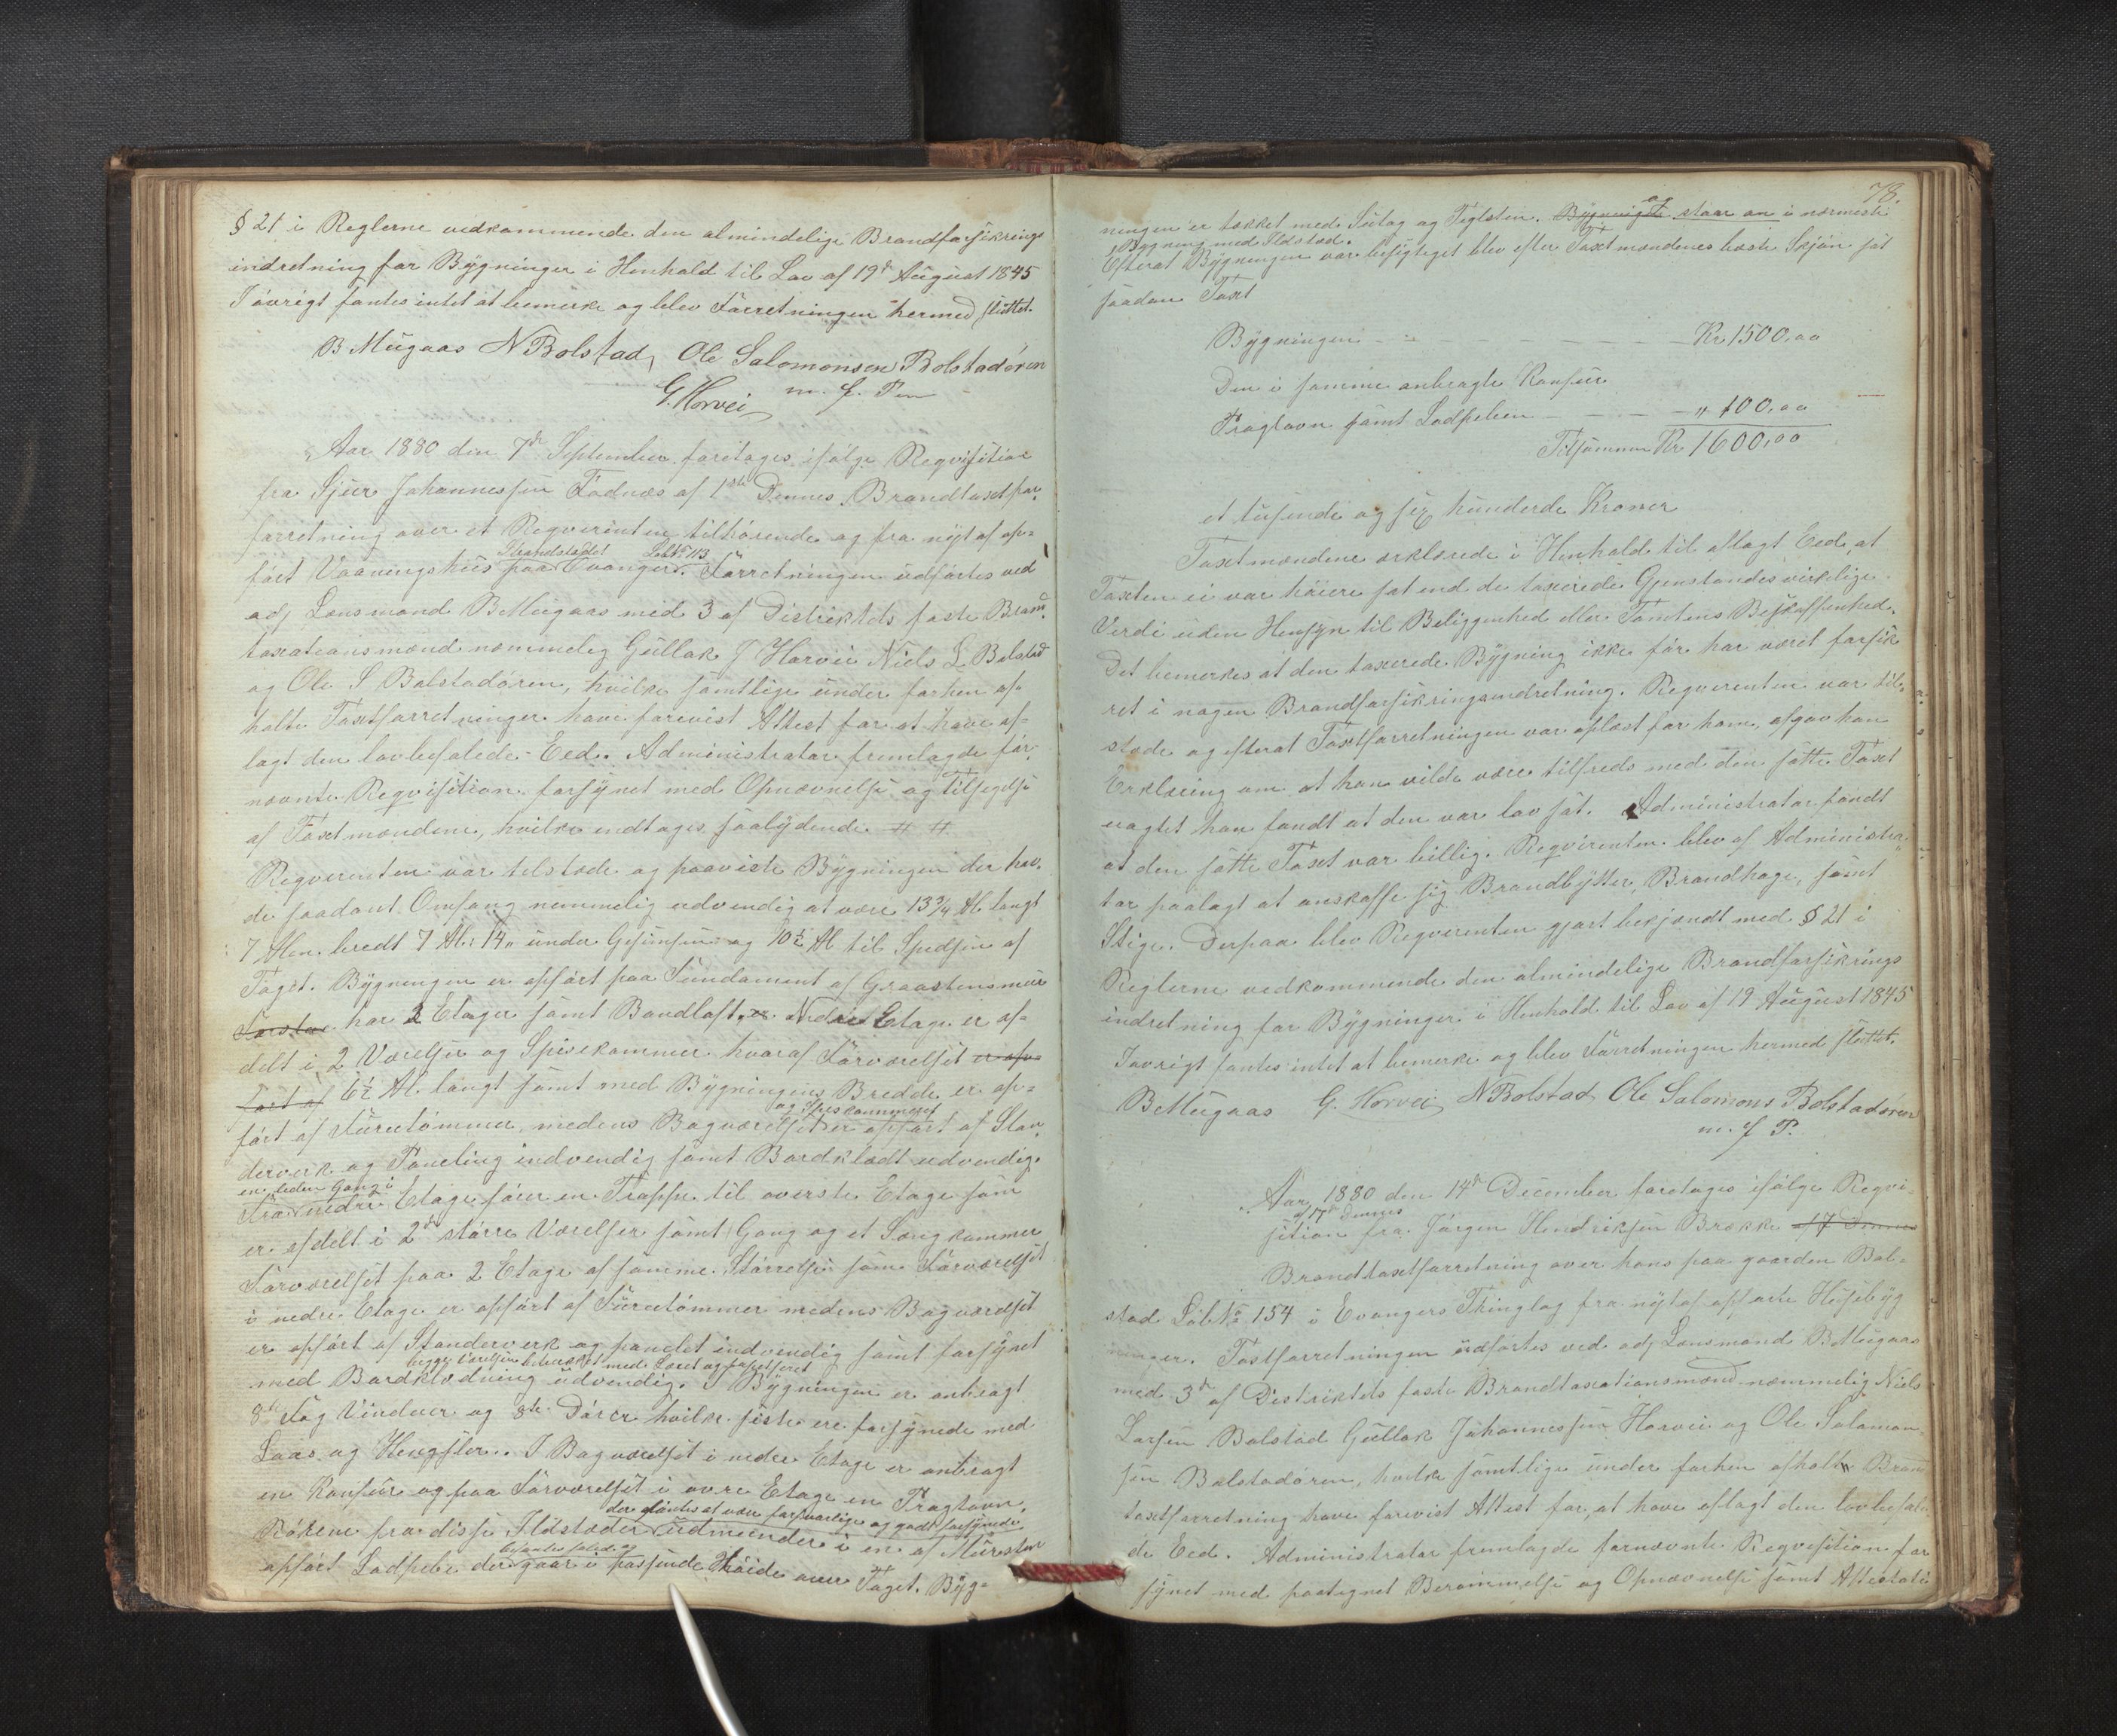 § 21 i Reglerne vedkommende den almindelige Brandforsikrings
indretning for Bygninger i Henhold til Lov af 19de August 1845
Iøvrigt fantes intet at bemerke og blev Forretningen hermed sluttet.
B Mugaas N Bolstad, Ole Salomonsen Bolstadøren
G. Horvei m. f. Pen
Aar 1880 den 7de September foretages ifølge Reqvisition
fra Sjur Johannessen Fadnæs af 1ste Dennes Brandtaxtfor-
forretning over et Reqverenten tilhørende og fra nyt af op-
Strandstedet Løbno 113
ført Vaaningshus paa Evanger. Forretningen udførtes ved
adj Lensmand B Mugaas med 3 af Distriktets faste Brand-
taxationsmænd nemmelig Gullak J Horvei Niels L Bolstad
og Ole S Bolstadøren, hvilke samtlige under forhen af-
holte Taxtforretninger have forevist Attest for at have af-
lagt den lovbefalede Eed. Administrator fremlagde før-
nævnte Reqvisition forsynet med Opnævnelse og Tilsigelse
af Taxtmændene, hvilke indtages saalydende # #
Reqverenten var tilstede og paaviste Bygningen der hav-
de saadant Omfang nemmelig udvendig at være 13 3/4 Al. langt
7 Alen bredt 7 Al: 14" under Gesimsen og 10 1/2 Al til Spidsen af
Taget. Bygningen er opført paa Fundament af Graastensmur
har 2 Etager samt Bandloft. Nedre Etage er af-
delt i 2 Værelser og Spisekammer hvoraf Forværelset er opf-
ført af 6 1/2 Al. langt samt med Bygningens Bredde er op-
og Spiskammeret
ført af Furutømmer, medens Bagværelset er opført af Stan-
derverk og Paneling indvendig samt Bordklædt udvendig.
en liden Gang i
Fra nedre Etage fører en Trappe til øverste Etage som
er afdelt i 2de større Værelser samt Gang og et Sengkammer
Forværelset paa 2 Etage af samme Størrelse som Forværelset
i nedre Etage er opført af Furutømmer medens Bagværelset
er opført af Standerverk og panelet indvendig samt forsynet
begge Værelser med Læret og tapetseret
med Bordklædning udvendig. I Bygningen er anbragt
8te Fag Vinduer og 8te Dører hvilke siste ere forsynede med
Laas og Hengsler. I Bagværelset i nedre Etage er anbragt
en Komfur og paa Forværelset i øvre Etage en Tragtovn.
der fantes at være forsvarlige og godt forsynede
Rørene fra disse Ildstæder udmunder i en af Mursten
befantes solid og
opført Ladpibe der gaar i passende Høide over Taget. Byg-
78.
og
ningen er tækket med Sutag og Teglsten. Bygningen staar an i nærmeste
Bygning med Ildsted.
Efterat Bygningen var besigtiget blev efter Taxtmændenes beste Skjøn sat
saadan Taxt
Bygningen - - - - - - - Kr 1500,00
Den i samme anbragte Komfur
Tragtovn samt Ladpiben - - - - " 100,00
Tilsammen Kr 1600,00
et tusende og sex hunderde Kroner
Taxtmændene erklærede i Henhold til aflagt Eed, at
Taxten ei var høiere sat end de taxerede Gjenstandes virkelige
Verdi uden Hensyn til Beliggenhed eller Tomtens Beskaffenhed.
Det bemerkes at den taxerede Bygning ikke før har været forsik-
ret i nogen Brandforsikringsindretning. Reqverenten var til-
stede og efterat Taxtforretningen var oplæst for ham, afgav han
Erklæring om at han vilde være tilfreds med den satte Taxt
uagtet han fandt at den var lav sat. Administrator fandt
at den satte Taxt var billig. Reqvirenten blev af Administra-
tor paalagt at anskaffe sig Brandbøtter, Brandhage, samt
Stige. Derpaa blev Reqverenten gjort bekjændt med § 21 i
Reglerne vedkommende den almindelige Brandforsikrings
indretning for Bygninger i Henhold til Lov af 19 August 1845
Iøvrigt fantes intet at bemerke og blev Forretningen hermed sluttet.
B Mugaas G. Horvei N Bolstad Ole Salomons Bolstadøren
m. f P.
Aar 1880 den 14de December foretages ifølge Reqvi-
af 7de Dennes
sition fra Jørgen Hendriksen Brække af 7 Dennes
Brandtaxtforretning over hans paa gaarden Bol-
stad Løb No 154 i Evangers Thinglag fra nyt af opførte Husebyg
ninger. Taxtforretningen udførtes ved adj Lensmand B Mugaas
med 3de af Distriktets faste Brandtaxationsmænd nemmelig Niels
Larsen Bolstad Gullak Johannessen Horvei og Ole Salomon-
sen Bolstadøren, hvilke samtlige under forhen afholte Brand
taxtforretning have forevist Attest for, at have aflagt den lovbefale-
de Eed. Administrator fremlagde fornævnte Reqvisition for
synet med paategnet Berammelse og Opnævnelse samt Attestati